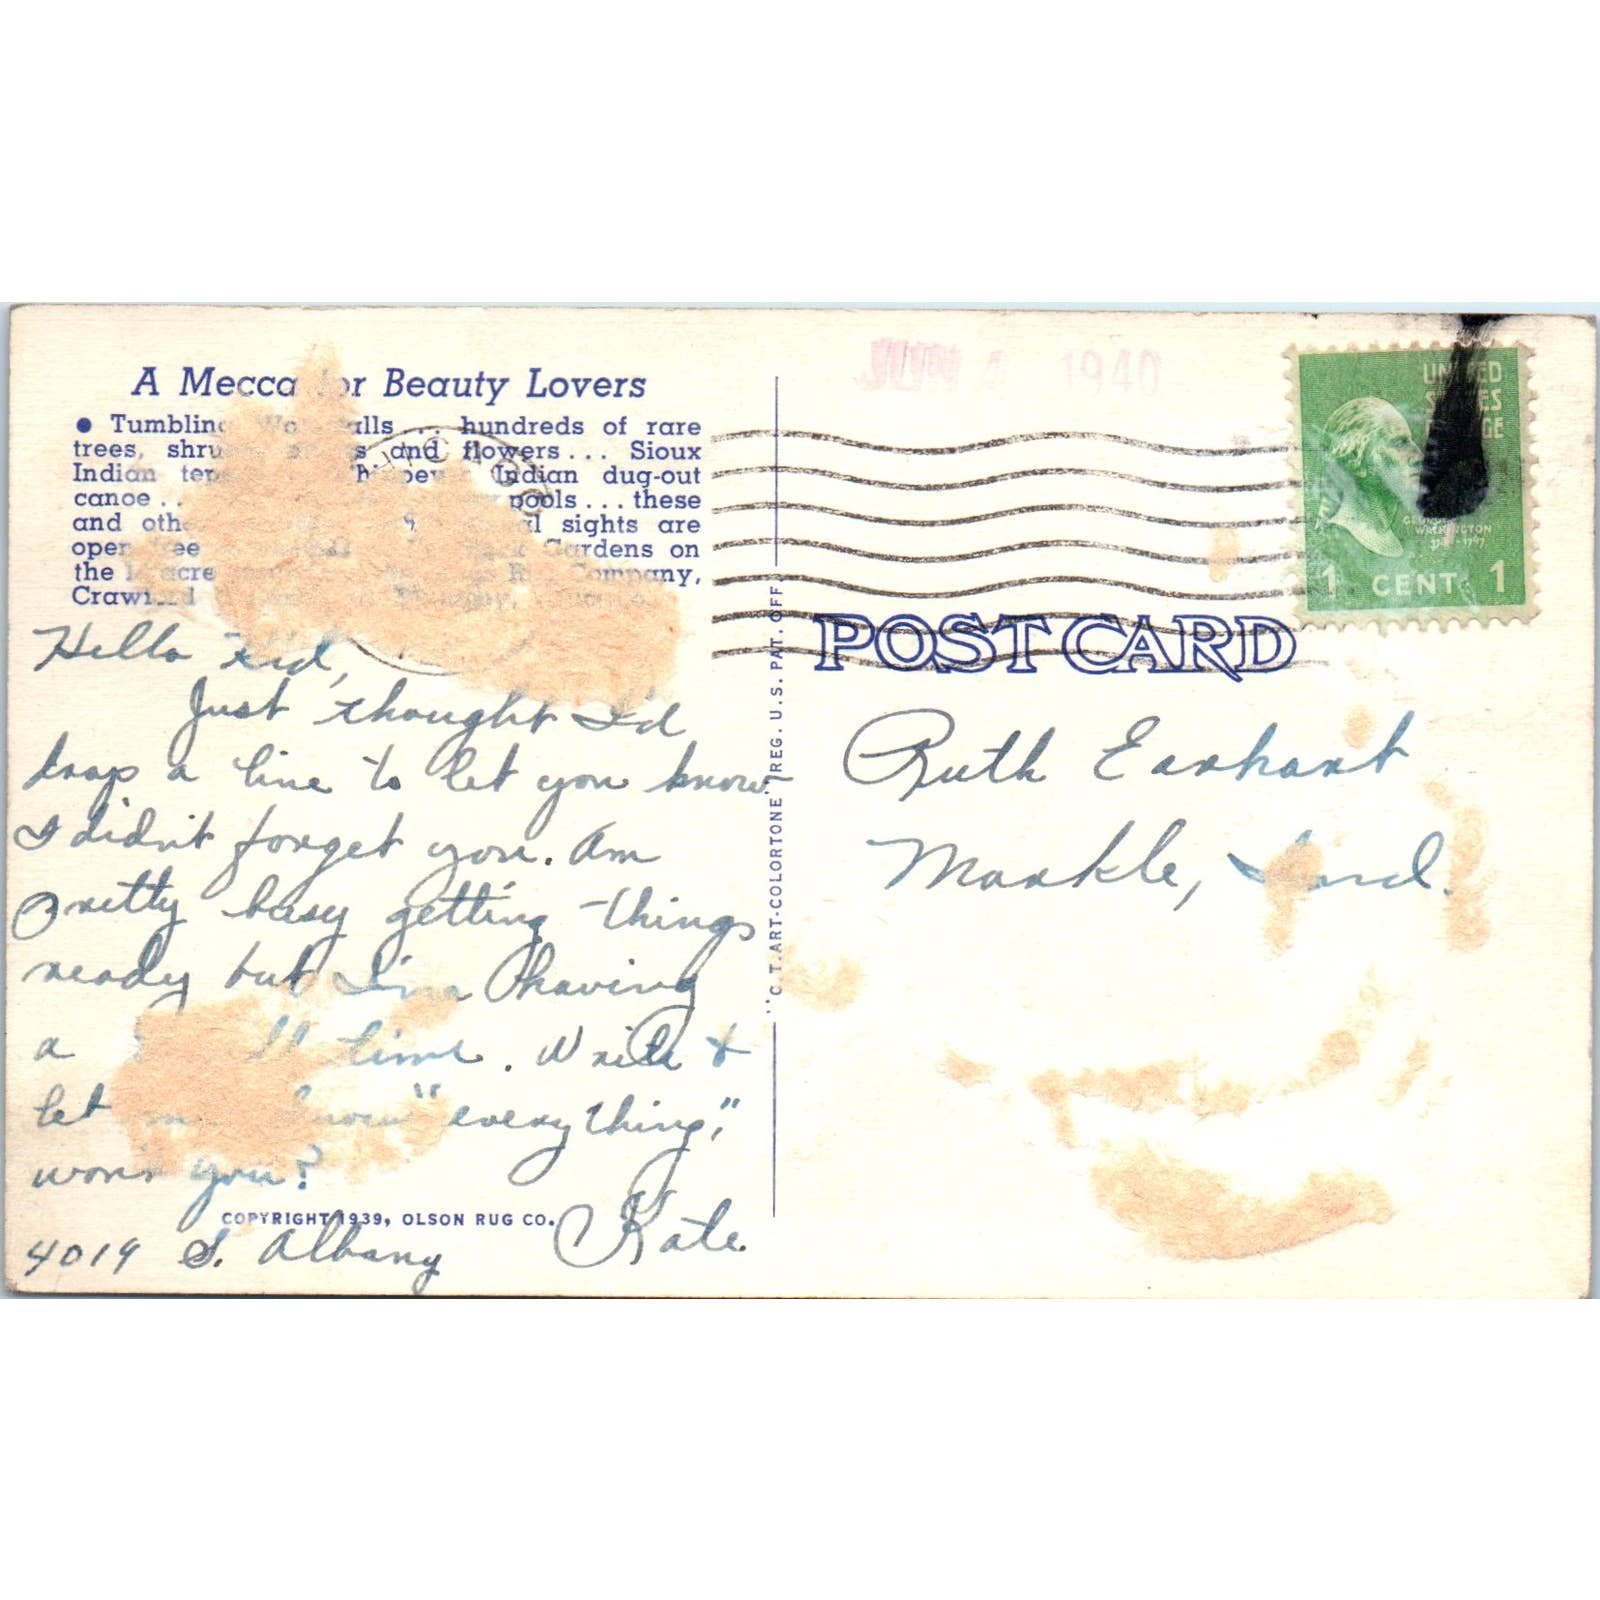 A Mecca for Beauty Lovers
● Tumbling Water Falls . . . hundreds of rare
trees, shrubs, and flowers . . . Sioux
Indian Indian dug-out
canoe . . pools . . . these
and other sights are
open free Gardens on
the acre Company,
Crawford
JUN 4 1940
UNITED
STATES
POSTAGE
GEORGE
WASHINGTON
1 CENT 1
POST CARD
"C. T. ART-COLORTONE" REG. U. S. PAT. OFF.
Hello Kid,
Just thought I'd
drop a line to let you know
I didn't forget you. Am
pretty busy getting things
ready but I'm having
a time. Write &
let me know "everything,"
won't you?
Kate.
4019 S. Albany
COPYRIGHT 1939, OLSON RUG CO.
Ruth Earhart
Markle, Ind.